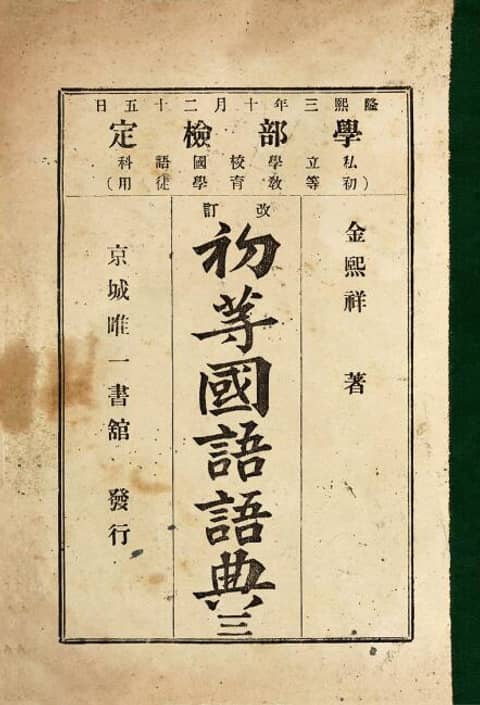 隆熙三年十月二十五日
學部檢定
私立學校國語科
(初等敎育學徒用)
金熙祥 著
改訂
初等國語語典 三
京城唯一書舘 發行